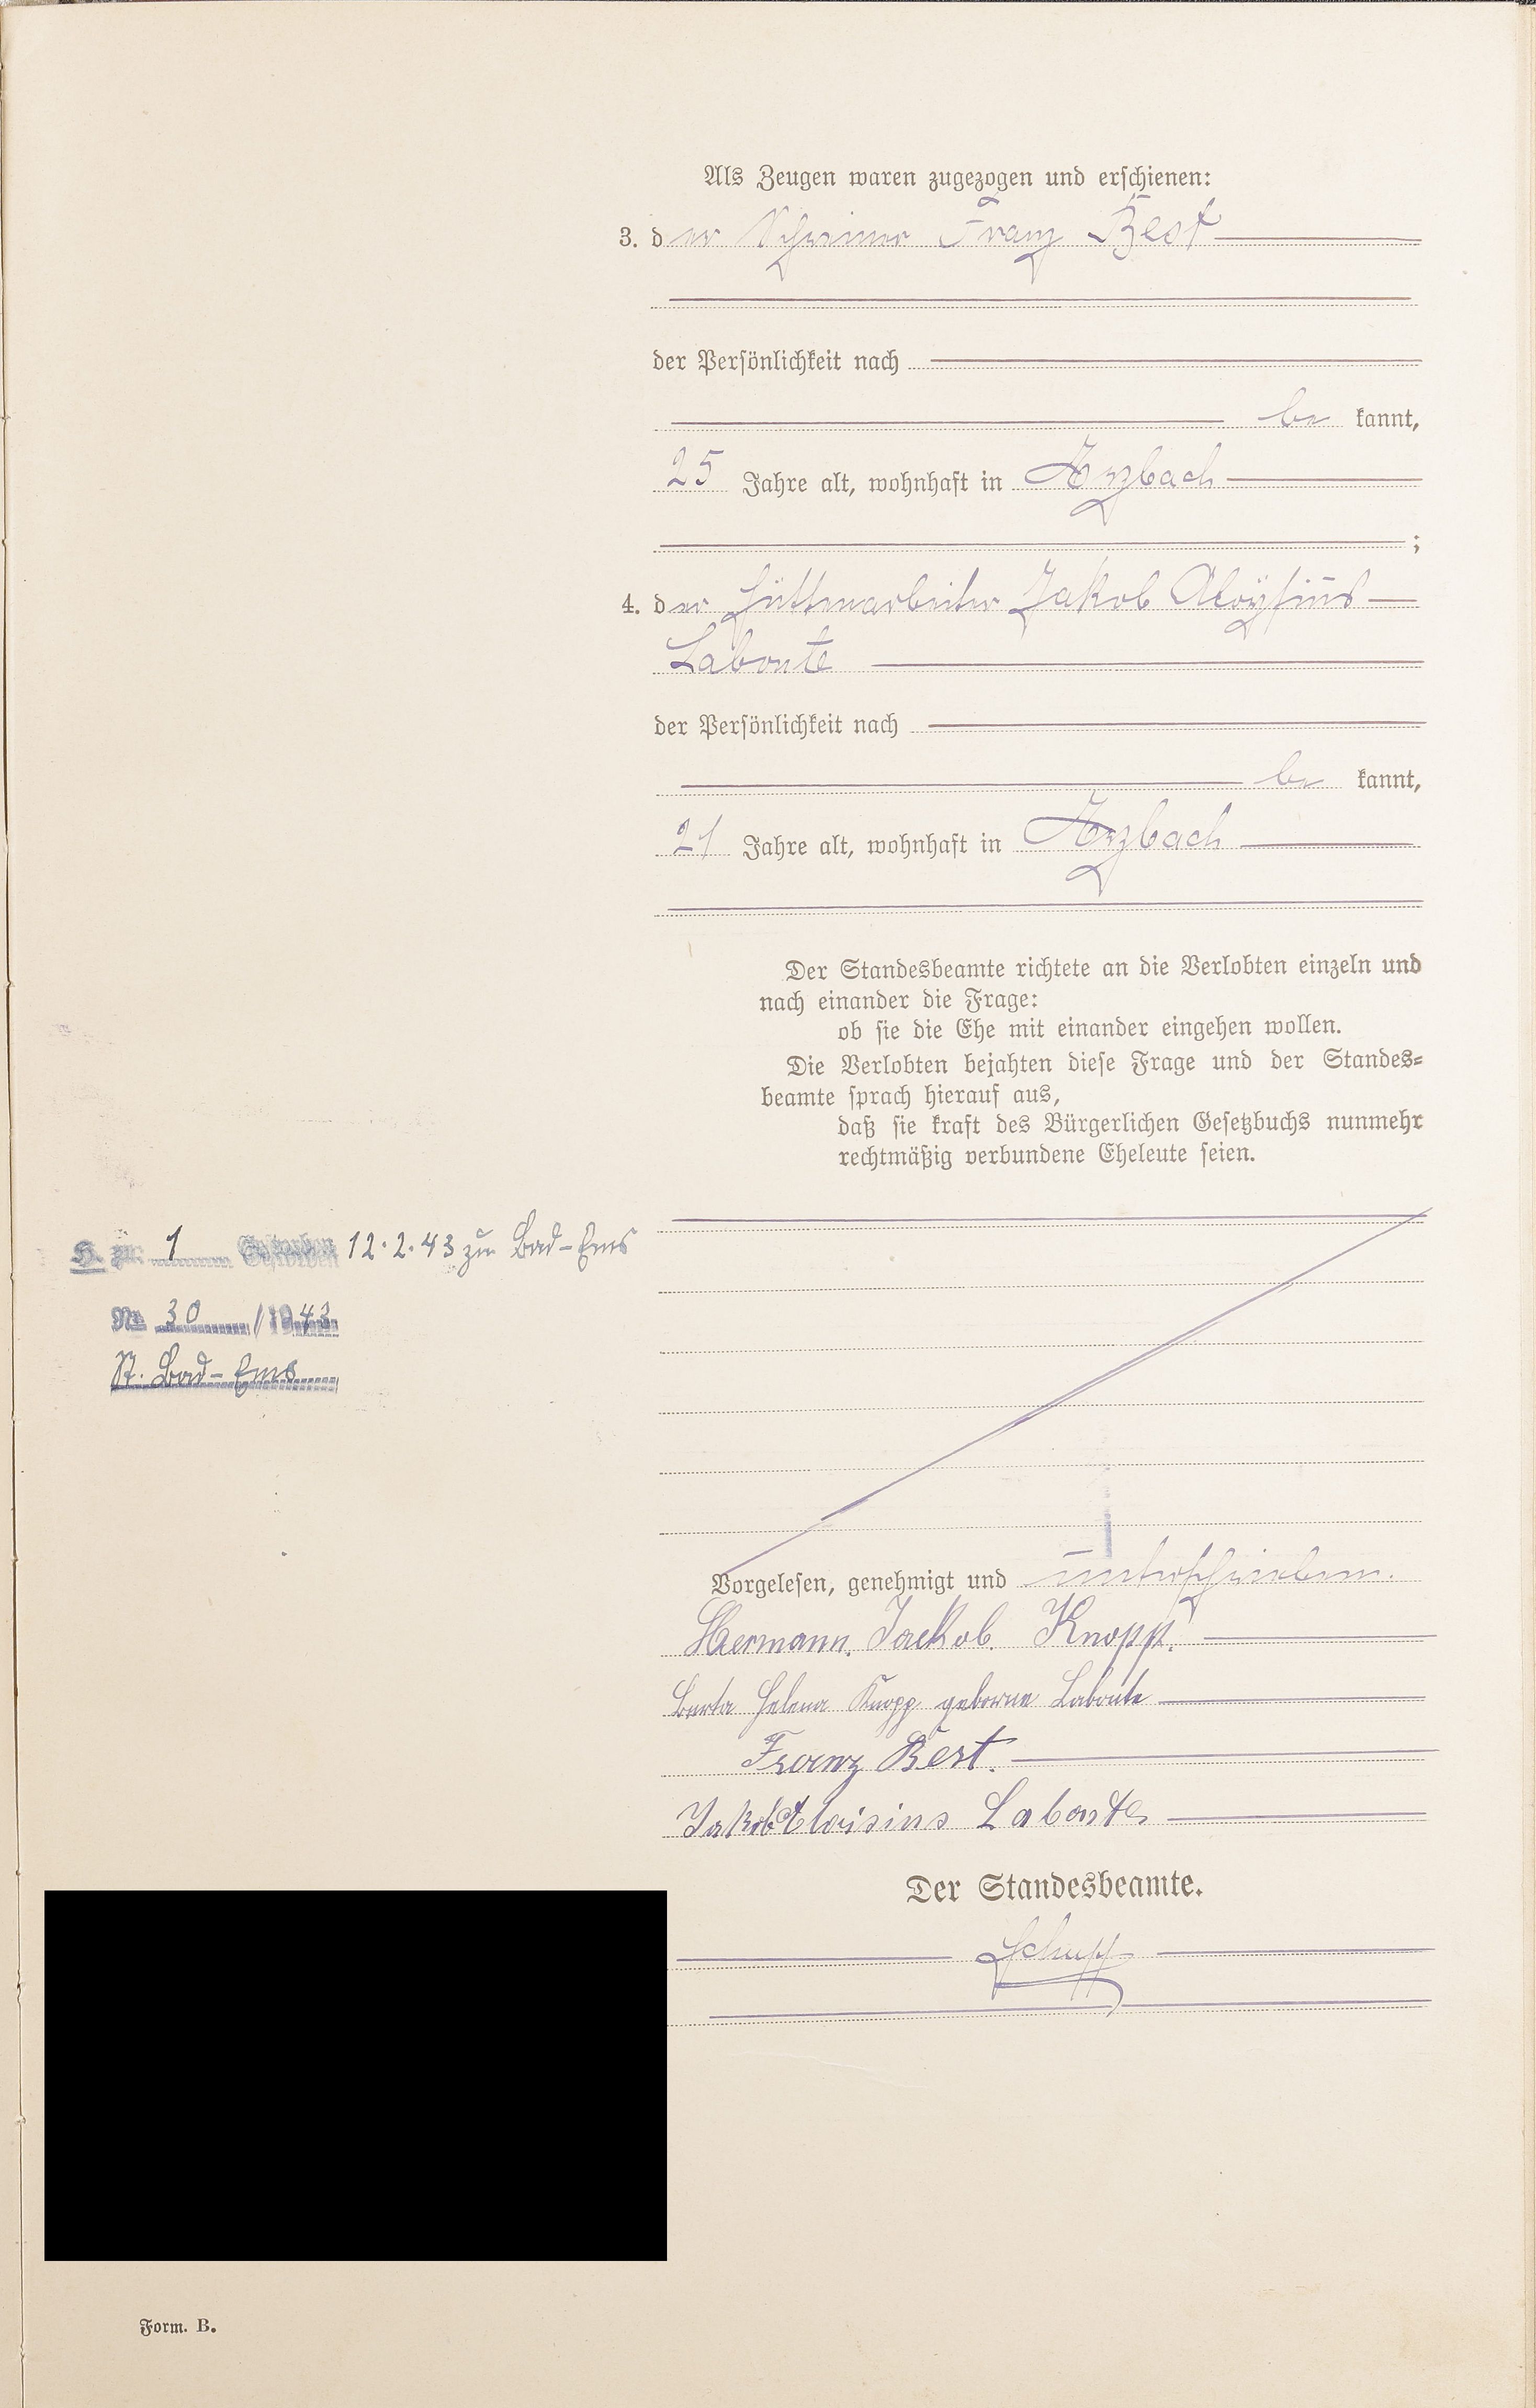 Als Zeugen waren zugezogen und erschienen:
3. der Schreiner Franz Best
der Persönlichkeit nach
be kannt,
25 Jahre alt, wohnhaft in Arzbach
;
4. der Hüttenarbeiter Jakob Aloÿsius
Labonte
der Persönlichkeit nach
be kannt,
21 Jahre alt, wohnhaft in Arzbach
Der Standesbeamte richtete an die Verlobten einzeln und
nach einander die Frage:
ob sie die Ehe mit einander eingehen wollen.
Die Verlobten bejahten diese Frage und der Standes-
beamte sprach hierauf aus,
daß sie kraft des Bürgerlichen Gesetzbuchs nunmehr
rechtmäßig verbundene Eheleute seien.
zu 1 Gestorben 12.2.43 zu Bad-Ems
Nr. 30 /1943
St. Bad-Ems
Vorgelesen, genehmigt und unterschrieben.
Hermann. Jackob. Knopp.
Berta Helena Knopp geborne Labonte
Franz Best.
Jakob Aloisius Labonte
Der Standesbeamte.
Schupp
Form. B.